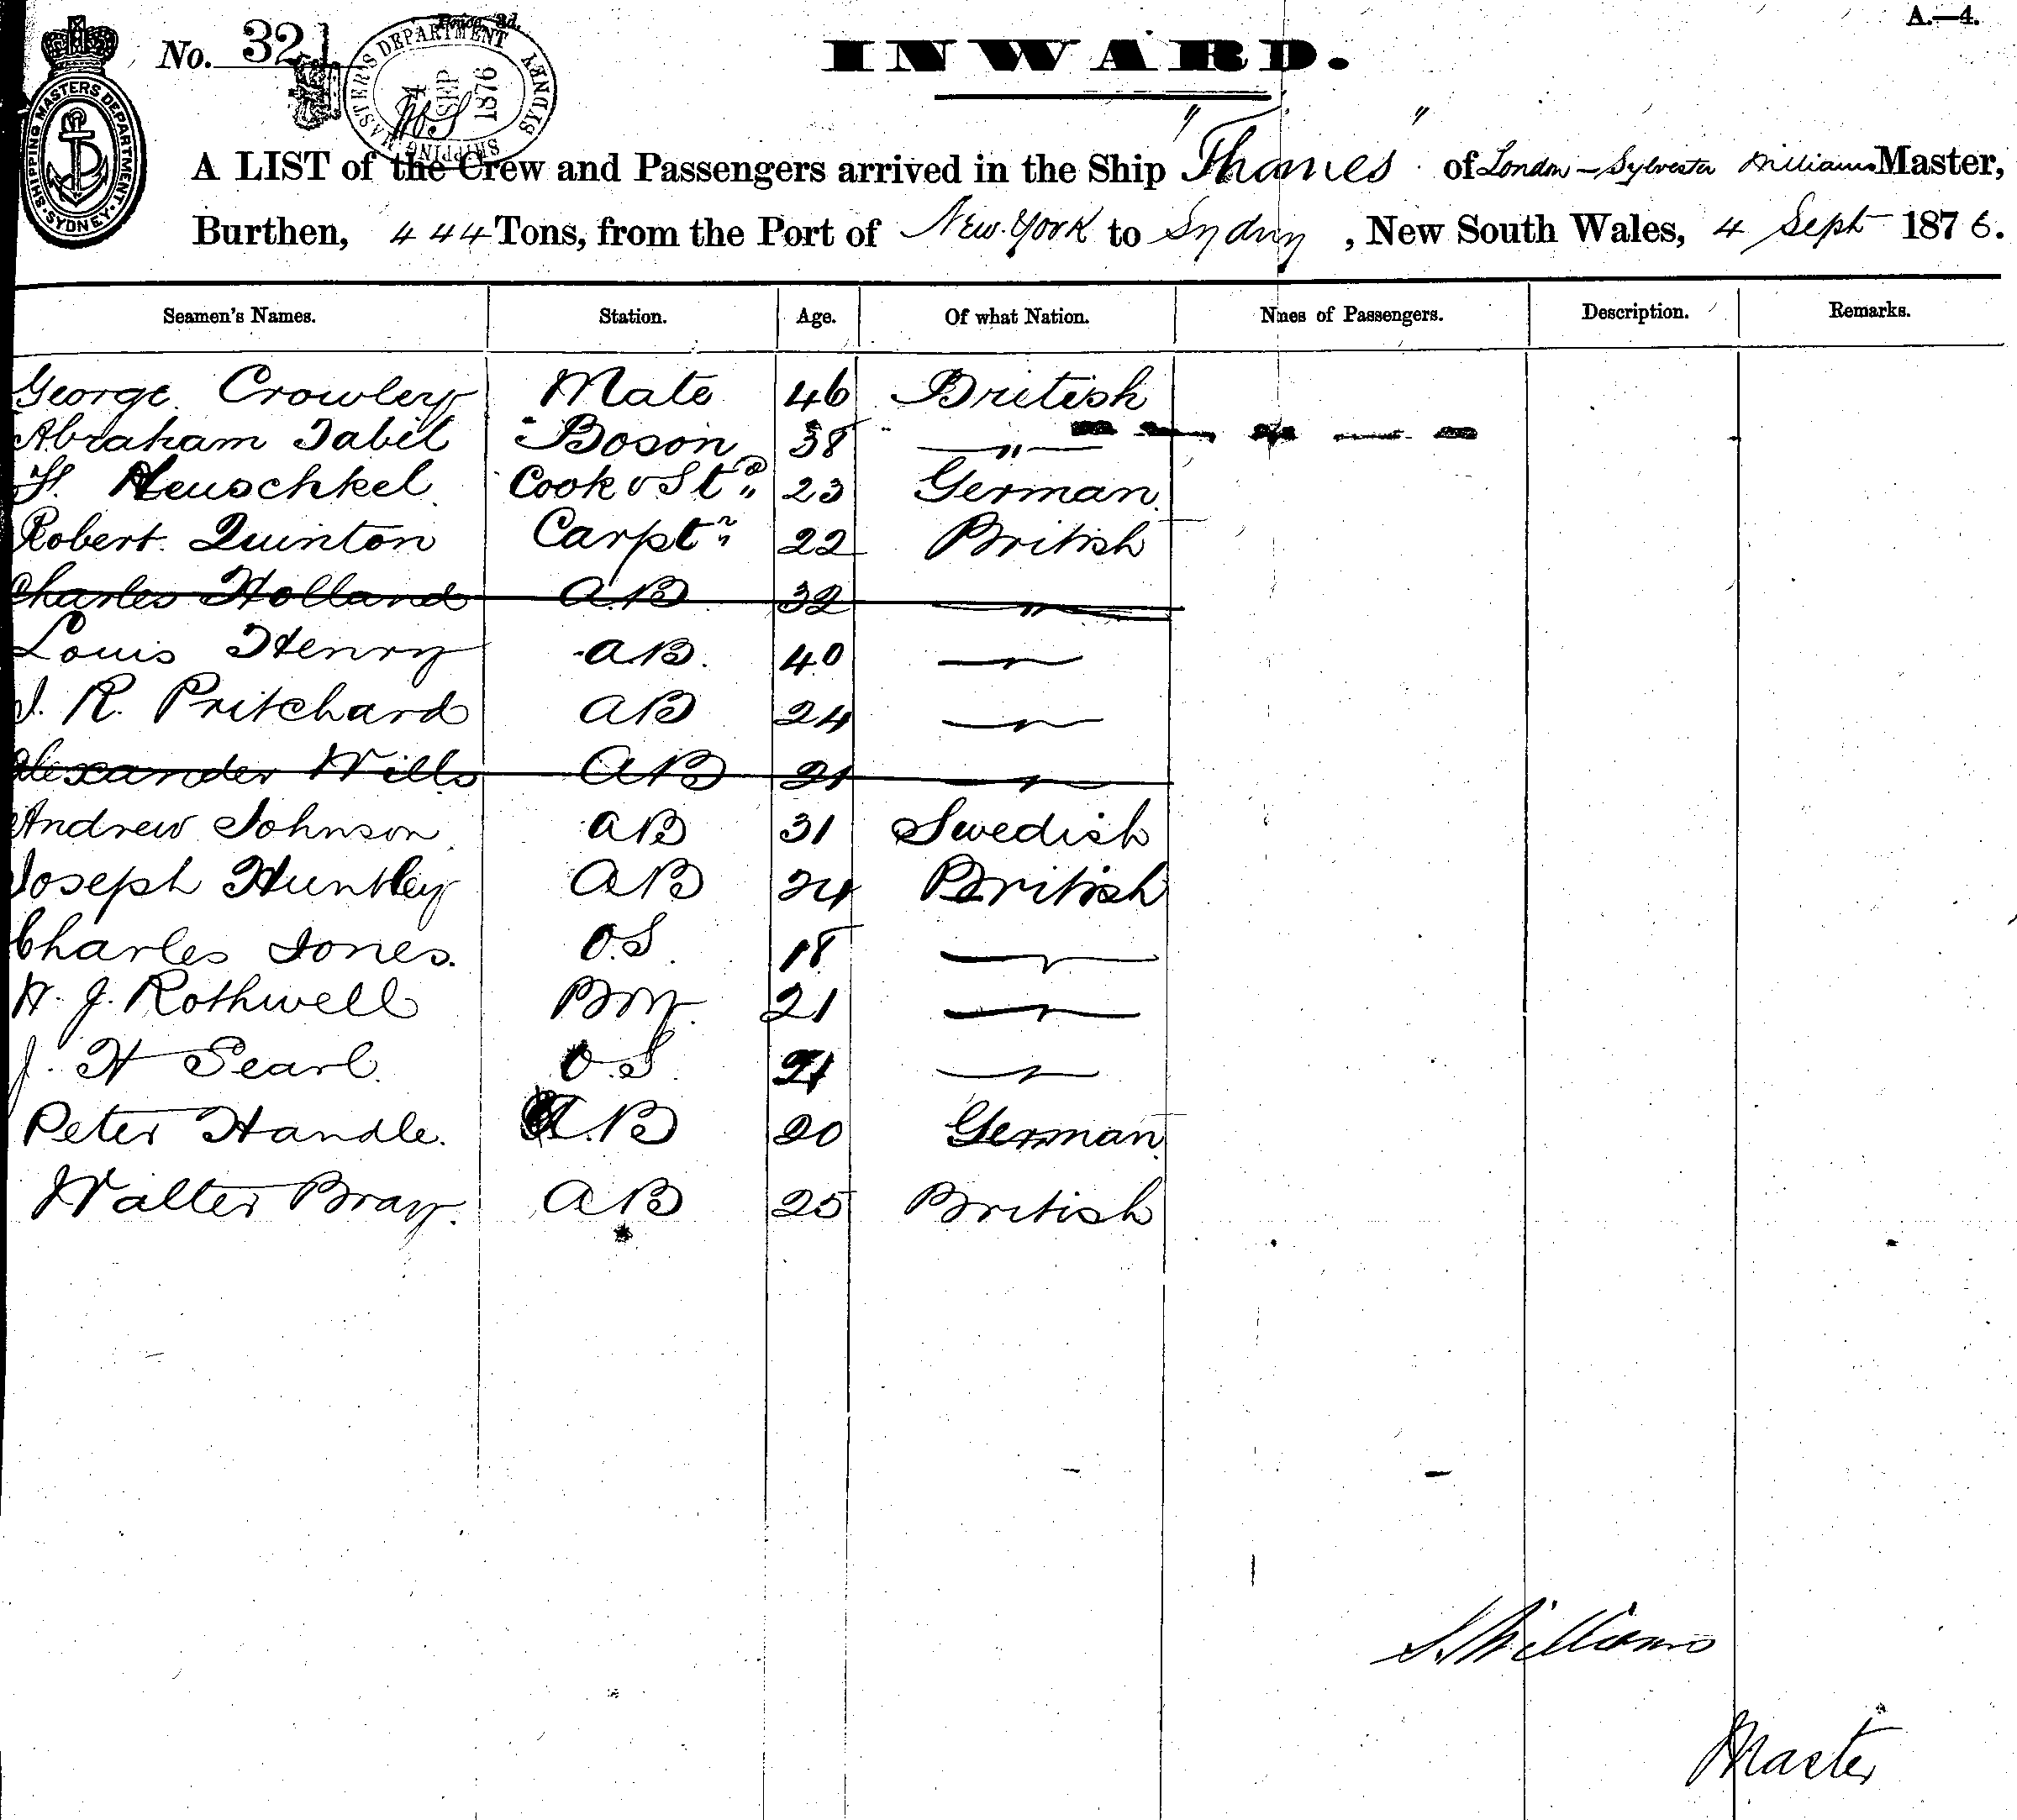 A.—4.
Price, 3d.
No. 321
SHIPPING MASTERS DEPARTMENT SYDNEY
4 SEP 1876
SHIPPING MASTERS DEPARTMENT. SYDNEY.
INWARD.
A LIST of the Crew and Passengers arrived in the Ship "Thames" of London - Sylvester Williams Master,
Burthen, 444 Tons, from the Port of New York to Sydney, New South Wales, 4 Sept 1876.
Seamen's Names. Station. Age. Of what Nation. Nmes of Passengers. Description. Remarks.
George Crowley Mate 46 British
Abraham Tabil Boson 38 "
H. Heuschkel Cook & Std 23 German
Robert Quinton Carptr 22 British
Charles Holland A.B 32 "
Louis Henry A.B. 40 "
J. R. Pritchard AB 24 "
Alexander Wills AB 21 "
Andrew Johnson AB 31 Swedish
Joseph Huntley AB 24 British
Charles Jones. O.S. 18 "
W. J. Rothwell Boy 21 "
J. H Searl O.S. 21 "
Peter Handle. A.B 20 German
Walter Bray. AB 25 British
S. Williams
Master